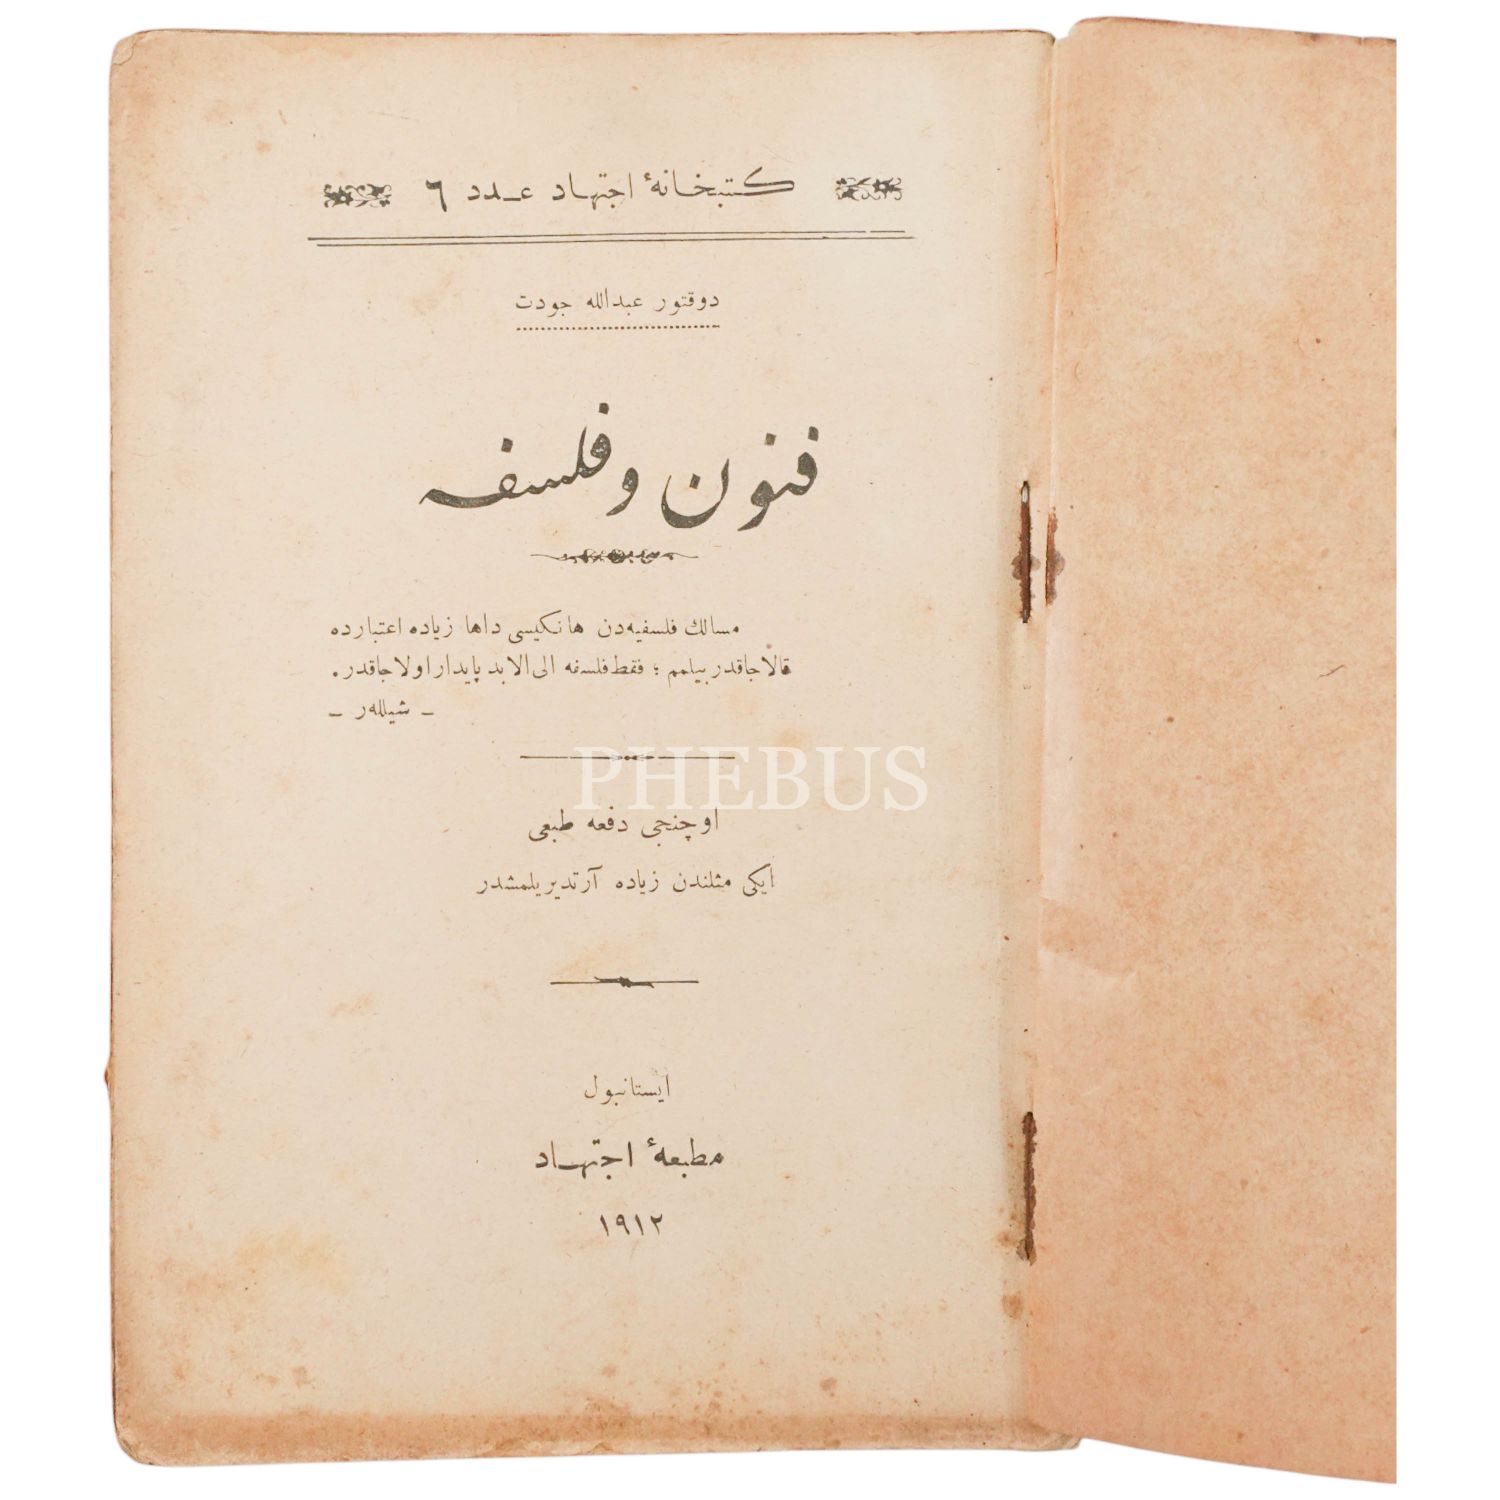 كتبخانهٔ اجتهاد عدد ٦
دوقتور عبدالله جودت
فنون و فلسفه
مسالك فلسفیه‌دن هانكیسی داها زیاده اعتبارده
قالاجاقدر بیلمم ؛ فقط فلسفه الی الابد پایدار اولاجاقدر.
– شیلله‌ر –
PHEBUS
اوچنجی دفعه طبعی
ایكی مثلندن زیاده آرتدیریلمشدر
ایستانبول
مطبعهٔ اجتهاد
١٩١٢